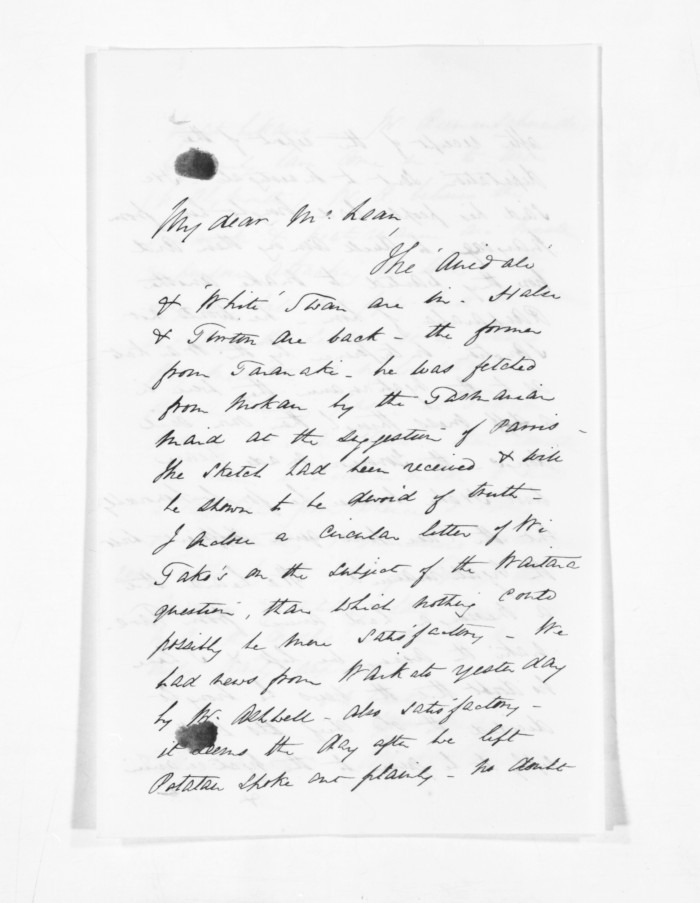 My dear McLean,
The 'Airedale'
& 'White' Swan are in - Halse
& Turton are back - the former
from Taranaki - he was fetched
from Mokau by the Tasmanian
Maid at the suggestion of Parris -
The sketch had been received & will
be shown to be devoid of truth -
I enclose a circular letter of Wi
Tako's on the subject of the Waitara
question, than which nothing could
possibly be more satisfactory - We
had news from Waikato yesterday
by Mr. Ashwell - also satisfactory -
it seems the day after we left
Potatau spoke out plainly - no doubt